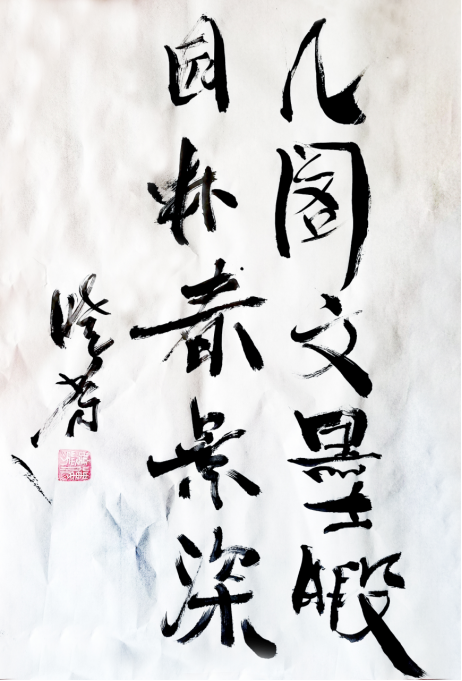 几阁文墨暇
园林春景深